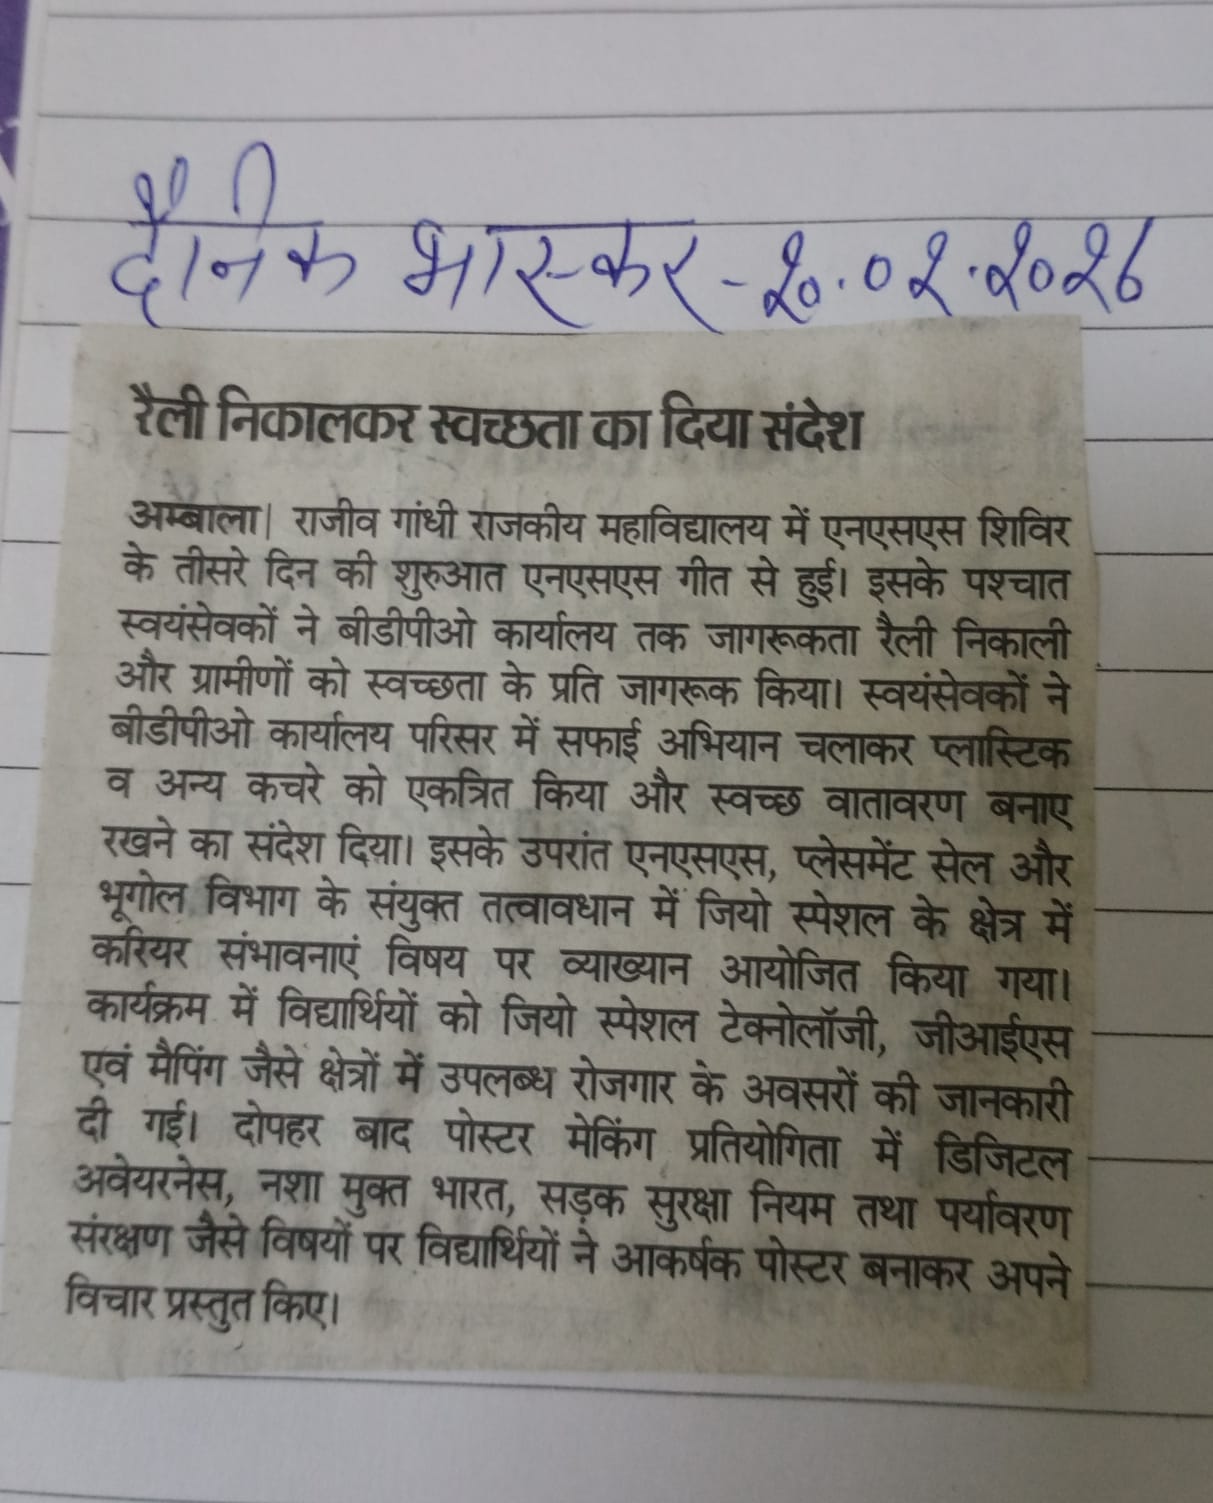 दैनिक भास्कर - २०.०२.२०२६
रैली निकालकर स्वच्छता का दिया संदेश
अम्बाला| राजीव गांधी राजकीय महाविद्यालय में एनएसएस शिविर
के तीसरे दिन की शुरुआत एनएसएस गीत से हुई। इसके पश्चात
स्वयंसेवकों ने बीडीपीओ कार्यालय तक जागरूकता रैली निकाली
और ग्रामीणों को स्वच्छता के प्रति जागरूक किया। स्वयंसेवकों ने
बीडीपीओ कार्यालय परिसर में सफाई अभियान चलाकर प्लास्टिक
व अन्य कचरे को एकत्रित किया और स्वच्छ वातावरण बनाए
रखने का संदेश दिया। इसके उपरांत एनएसएस, प्लेसमेंट सेल और
भूगोल विभाग के संयुक्त तत्वावधान में जियो स्पेशल के क्षेत्र में
करियर संभावनाएं विषय पर व्याख्यान आयोजित किया गया।
कार्यक्रम में विद्यार्थियों को जियो स्पेशल टेक्नोलॉजी, जीआईएस
एवं मैपिंग जैसे क्षेत्रों में उपलब्ध रोजगार के अवसरों की जानकारी
दी गई। दोपहर बाद पोस्टर मेकिंग प्रतियोगिता में डिजिटल
अवेयरनेस, नशा मुक्त भारत, सड़क सुरक्षा नियम तथा पर्यावरण
संरक्षण जैसे विषयों पर विद्यार्थियों ने आकर्षक पोस्टर बनाकर अपने
विचार प्रस्तुत किए।